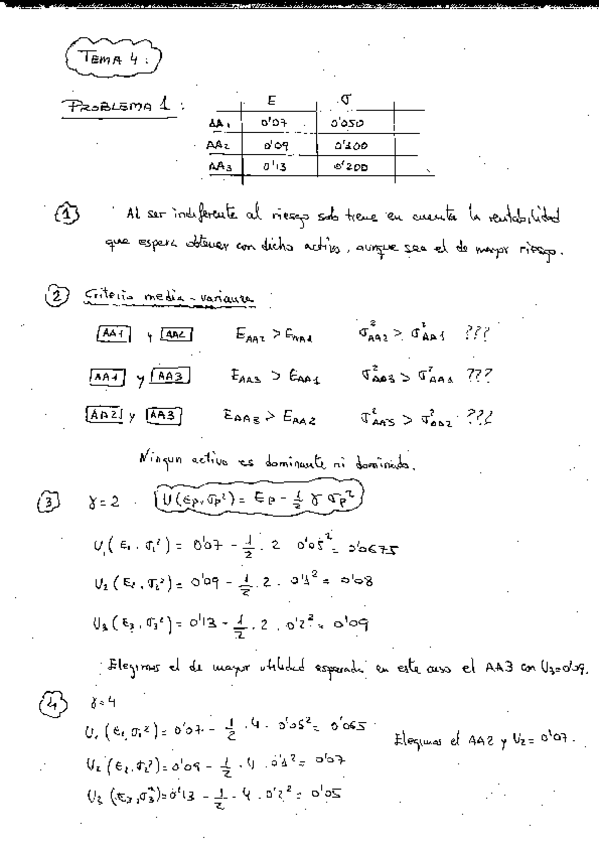 TEMA 4:
PROBLEMA 1:
E σ
AA1 0'07 0'050
AA2 0'09 0'100
AA3 0'13 0'200
① Al ser indiferente al riesgo solo tiene en cuenta la rentabilidad
que espera obtener con dicho activo, aunque sea el de mayor riesgo.
② Criterio media-varianza
AA1 y AA2 E_AA2 > E_AA1 σ²_AA2 > σ²_AA1 ???
AA1 y AA3 E_AA3 > E_AA1 σ²_AA3 > σ²_AA1 ???
AA2 y AA3 E_AA3 > E_AA2 σ²_AA3 > σ²_AA2 ???
Ningun activo es dominante ni dominado.
③ γ=2 . U(Ep,σp²) = Ep - 1/2 γ σp²
U₁(E₁,σ₁²) = 0'07 - 1/2 . 2 0'05² = 0'0675
U₂(E₂,σ₂²) = 0'09 - 1/2 . 2 . 0'1² = 0'08
U₃(E₃,σ₃²) = 0'13 - 1/2 . 2 . 0'2² = 0'09
Elegimos el de mayor utilidad esperada en este caso el AA3 con U₃=0'09.
④ γ=4
U₁(E₁,σ₁²) = 0'07 - 1/2 . 4 . 0'05² = 0'065
Elegimos el AA2 y U₂ = 0'07.
U₂(E₂,σ₂²) = 0'09 - 1/2 . 4 . 0'1² = 0'07
U₃(E₃,σ₃²) = 0'13 - 1/2 . 4 . 0'2² = 0'05